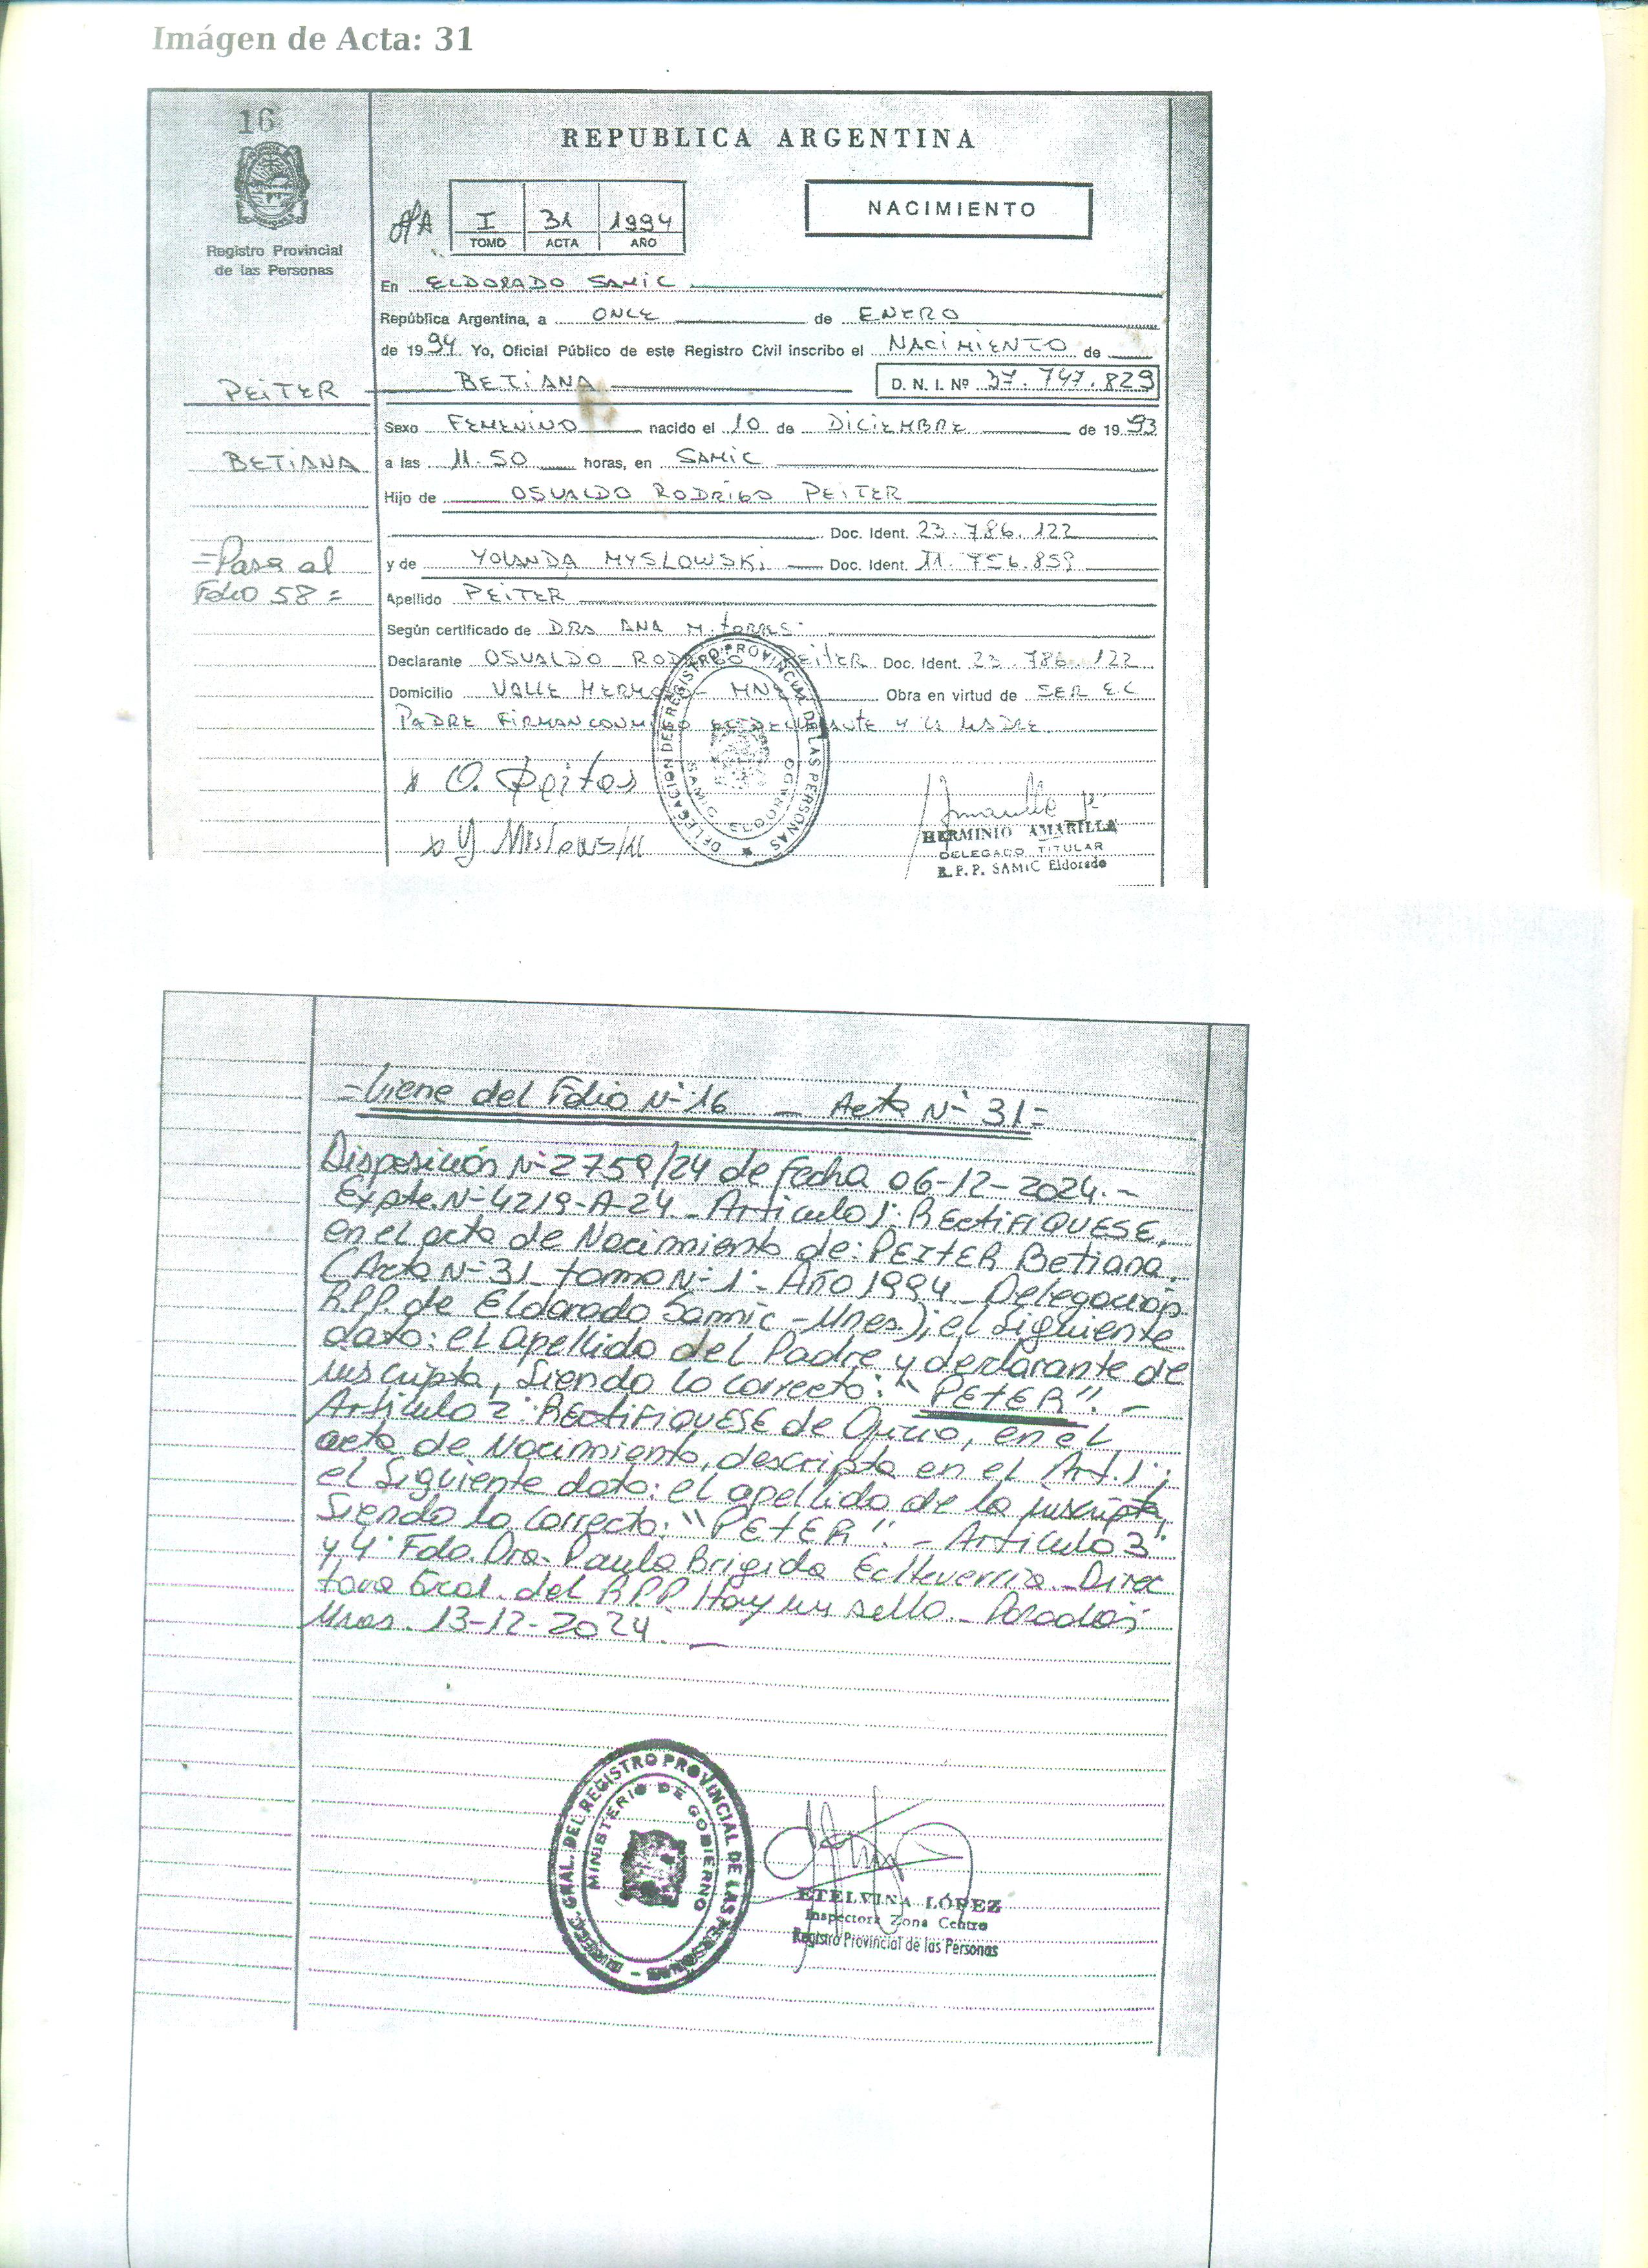 Imágen de Acta: 31
16
REPUBLICA ARGENTINA
NACIMIENTO
I 31 1994
TOMO ACTA AÑO
Registro Provincial
de las Personas
En ELDORADO SAMIC
República Argentina, a ONCE de ENERO
de 1994 Yo, Oficial Público de este Registro Civil inscribo el NACIMIENTO de
PEITER BETIANA D. N. I. Nº 37.747.829
Sexo FEMENINO nacido el 10 de DICIEMBRE de 1993
BETIANA a las 11.50 horas, en SAMIC
Hijo de OSVALDO RODRIGO PEITER
Doc. Ident. 23.786.122
=Pasa al
Folio 58=
y de YOLANDA MYSLOWSKI Doc. Ident. 11.756.859
Apellido PEITER
Según certificado de DRA ANA M. TORRES
Declarante OSVALDO RODRIGO PEITER Doc. Ident. 23.786.122
Domicilio VALLE HERMOSO - MNES Obra en virtud de SER EL
PADRE FIRMAN CONMIGO EL DECLARANTE Y LA MADRE.
DELEGACION DEL REGISTRO PROVINCIAL DE LAS PERSONAS
SAMIC ELDORADO
HERMINIO AMARILLA
DELEGADO TITULAR
R.P.P. SAMIC Eldorado
=Viene del Folio Nº 16 - Acta Nº 31=
Disposición Nº 2759/24 de fecha 06-12-2024.-
Expte. Nº 4219-A-24.- Artículo 1º: RECTIFIQUESE,
en el acta de Nacimiento de: PEITER Betiana.
(Acta Nº 31 - tomo Nº 1º - Año 1994 - Delegación
R.P.P. de Eldorado Samic - Mnes.); el siguiente
dato: el apellido del Padre y declarante de
inscripta, siendo lo correcto: "PETER". -
Artículo 2º: RECTIFIQUESE de Oficio, en el
acta de Nacimiento, descripta en el Art. 1º;
el siguiente dato: el apellido de la inscripta,
siendo lo correcto: "PETER". - Artículo 3º
y 4º Fdo. Dra. Paula Brigida Echeverria.- Direc
tora Gral. del RPP. Hay un sello.- Posadas;
Mnes. 13-12-2024.-
DIREC. GRAL. DEL REGISTRO PROVINCIAL DE LAS PERSONAS
MINISTERIO DE GOBIERNO
ETELVINA LÓPEZ
Inspectora Zona Centro
Registro Provincial de las Personas